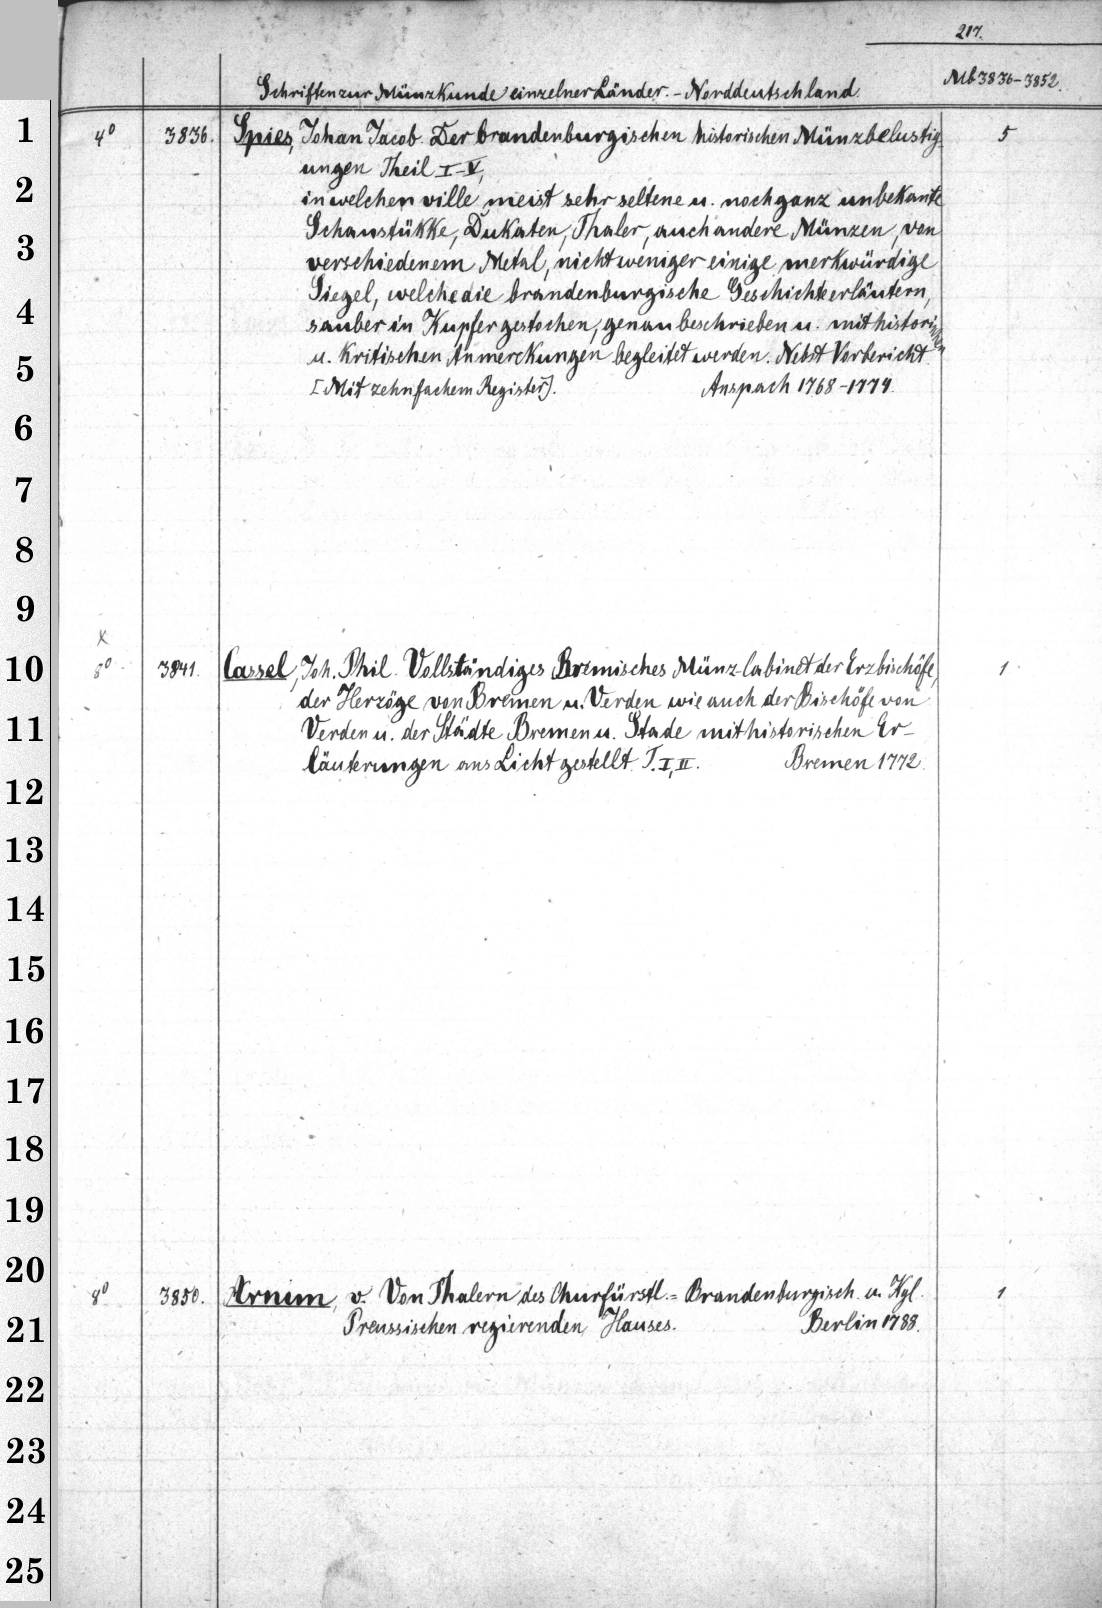 217.
Schriften zur Münzkunde einzelner Länder. - Norddeutschland.
Mb 3836-3852.
1
4° 3836. Spies, Johan Jacob. Der brandenburgischen historischen Münzbelustig- 5
ungen Theil I-V,
2
in welchen ville meist sehr seltene u. noch ganz unbekante
Schaustükke, Dukaten, Thaler, auch andere Münzen, von
3
verschiedenem Metal, nicht weniger einige merkwürdige
Siegel, welche die brandenburgische Geschichte erläutern,
4
sauber in Kupfer gestochen, genau beschrieben u. mit historischen
5
u. kritischen Anmerckungen begleitet werden. Nebst Vorbericht
[Mit zehnfachem Register]. Anspach 1768-1774.
6
7
8
9
x
10
8° 3841. Cassel, Joh. Phil. Vollständiges Bremisches Münz-Cabinet der Erzbischöfe, 1
der Herzöge von Bremen u. Verden wie auch der Bischöfe von
11
Verden u. der Städte Bremen u. Stade mit historischen Er-
läuterungen ans Licht gestellt. T. I, II. Bremen 1772.
12
13
14
15
16
17
18
19
20
8° 3850. Arnim, v. Von Thalern des Churfürstl.= Brandenburgisch. u. Kgl. 1
21
Preussischen regierenden Hauses. Berlin 1788.
22
23
24
25